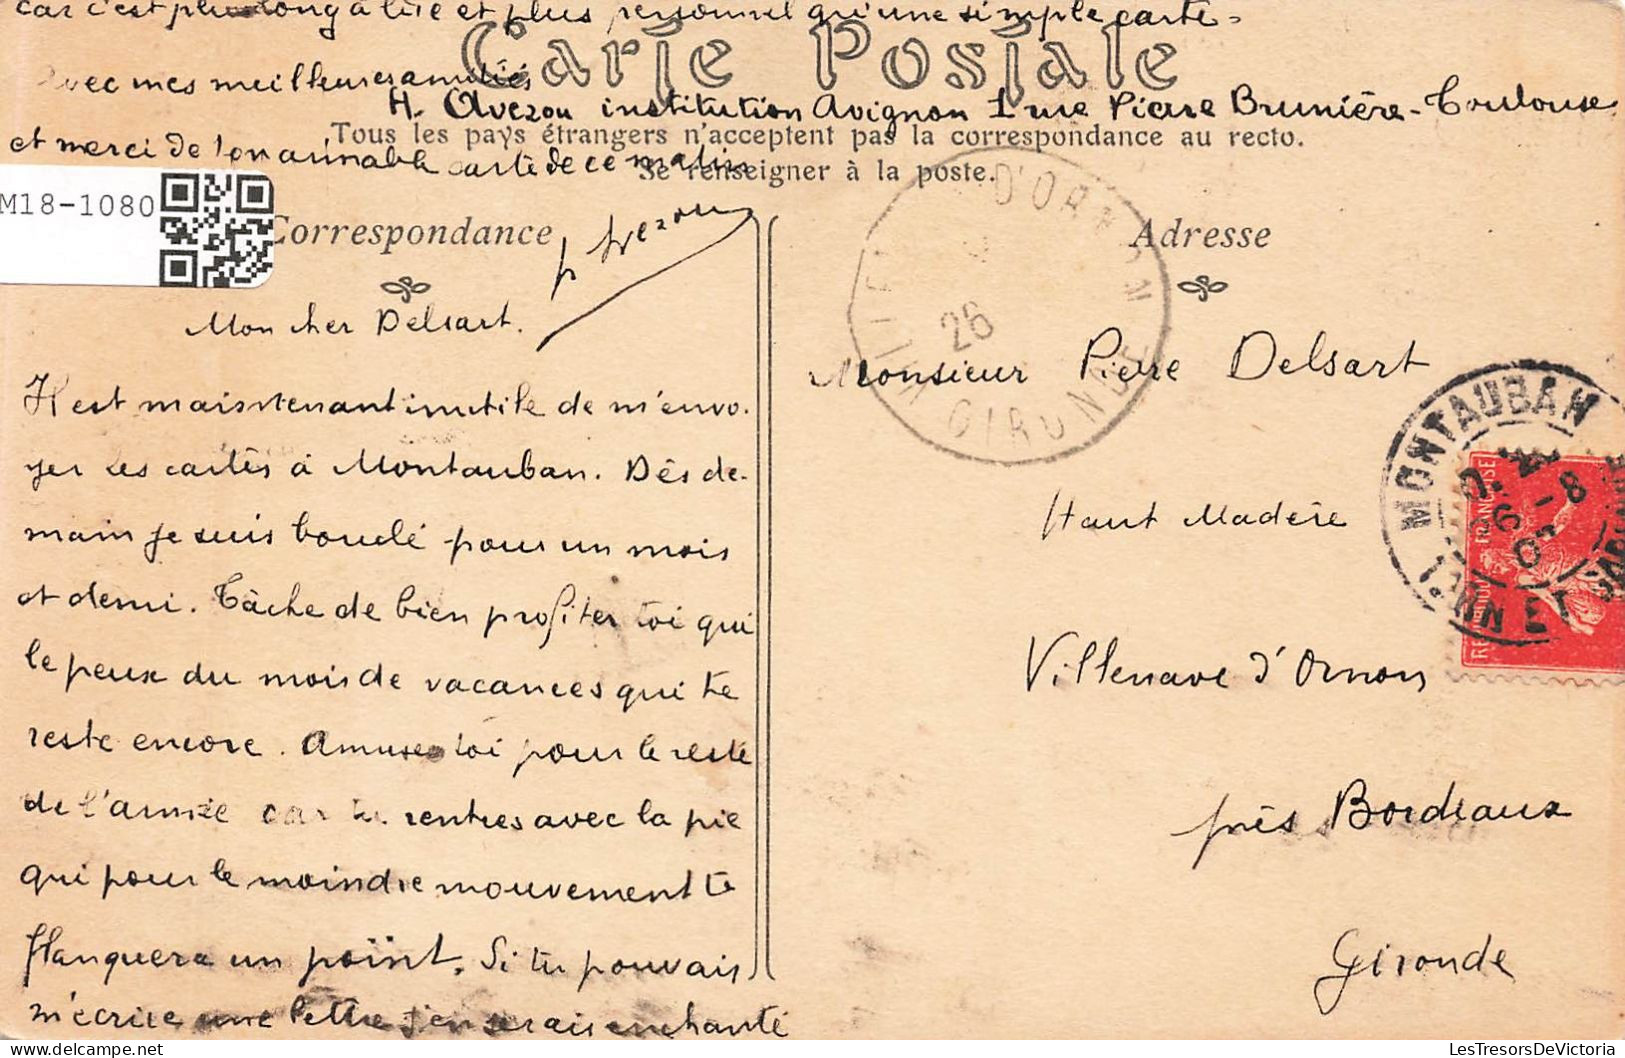 car c'est plus long à lire et plus personnel qu'une simple carte
Carte Postale
avec mes meilleures amitiés
H. Avezou institution Avignon 1 rue Pierre Brunière - Toulouse
Tous les pays étrangers n'acceptent pas la correspondance au recto.
et merci de ton aimable carte de ce matin
Se renseigner à la poste.
M18-1080
Correspondance
Avezou
Adresse
D'ORNON
GIRONDE
26
Mon cher Delsart.
Il est maintenant inutile de m'envo-
yer des cartes à Montauban. Dès de-
main je suis bouclé pour un mois
et demi. Tâche de bien profiter toi qui
le peux du mois de vacances qui te
reste encore. Amuse toi pour le reste
de l'année car tu rentres avec la pie
qui pour le moindre mouvement te
flanquera un poïnt. Si tu pouvais
m'écrire une lettre j'en serais enchanté
Monsieur Pierre Delsart
Haut Madère
Villenave d'Ornon
près Bordeaux
Gironde
MONTAUBAN
REPUBLIQUE FRANÇAISE
LesTresorsDeVictoria